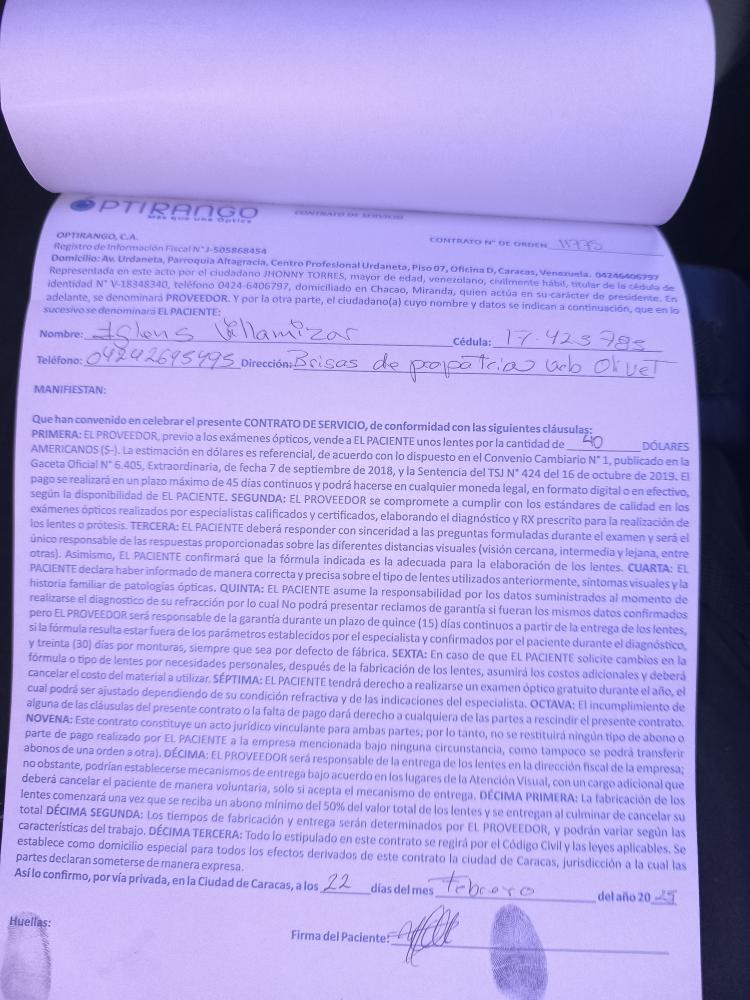 OPTIRANGO
Más que una Óptica
CONTRATO DE SERVICIO
OPTIRANGO, C.A.
CONTRATO N° DE ORDEN 11770
Registro de Información Fiscal N° J-505868454
Domicilio: Av. Urdaneta, Parroquia Altagracia, Centro Profesional Urdaneta, Piso 07, Oficina D, Caracas, Venezuela. 04246406797
Representada en este acto por el ciudadano JHONNY TORRES, mayor de edad, venezolano, civilmente hábil, titular de la cédula de
identidad N° V-18348340, teléfono 0424-6406797, domiciliado en Chacao, Miranda, quien actúa en su carácter de presidente. En
adelante, se denominará PROVEEDOR. Y por la otra parte, el ciudadano(a) cuyo nombre y datos se indican a continuación, que en lo
sucesivo se denominará EL PACIENTE:
Nombre: Villamizar Cédula: 17.423785
Teléfono: 04242695495 Dirección: Brisas de propatria Urb Olivet
MANIFIESTAN:
Que han convenido en celebrar el presente CONTRATO DE SERVICIO, de conformidad con las siguientes cláusulas:
PRIMERA: EL PROVEEDOR, previo a los exámenes ópticos, vende a EL PACIENTE unos lentes por la cantidad de 40 DÓLARES
AMERICANOS ($-). La estimación en dólares es referencial, de acuerdo con lo dispuesto en el Convenio Cambiario N° 1, publicado en la
Gaceta Oficial N° 6.405, Extraordinaria, de fecha 7 de septiembre de 2018, y la Sentencia del TSJ N° 424 del 16 de octubre de 2019. El
pago se realizará en un plazo máximo de 45 días continuos y podrá hacerse en cualquier moneda legal, en formato digital o en efectivo,
según la disponibilidad de EL PACIENTE. SEGUNDA: EL PROVEEDOR se compromete a cumplir con los estándares de calidad en los
exámenes ópticos realizados por especialistas calificados y certificados, elaborando el diagnóstico y RX prescrito para la realización de
los lentes o prótesis. TERCERA: EL PACIENTE deberá responder con sinceridad a las preguntas formuladas durante el examen y será el
único responsable de las respuestas proporcionadas sobre las diferentes distancias visuales (visión cercana, intermedia y lejana, entre
otras). Asimismo, EL PACIENTE confirmará que la fórmula indicada es la adecuada para la elaboración de los lentes. CUARTA: EL
PACIENTE declara haber informado de manera correcta y precisa sobre el tipo de lentes utilizados anteriormente, síntomas visuales y la
historia familiar de patologías ópticas. QUINTA: EL PACIENTE asume la responsabilidad por los datos suministrados al momento de
realizarse el diagnostico de su refracción por lo cual No podrá presentar reclamos de garantía si fueran los mismos datos confirmados
pero EL PROVEEDOR será responsable de la garantía durante un plazo de quince (15) días continuos a partir de la entrega de los lentes,
si la fórmula resulta estar fuera de los parámetros establecidos por el especialista y confirmados por el paciente durante el diagnóstico,
y treinta (30) días por monturas, siempre que sea por defecto de fábrica. SEXTA: En caso de que EL PACIENTE solicite cambios en la
fórmula o tipo de lentes por necesidades personales, después de la fabricación de los lentes, asumirá los costos adicionales y deberá
cancelar el costo del material a utilizar. SÉPTIMA: EL PACIENTE tendrá derecho a realizarse un examen óptico gratuito durante el año, el
cual podrá ser ajustado dependiendo de su condición refractiva y de las indicaciones del especialista. OCTAVA: El incumplimiento de
alguna de las cláusulas del presente contrato o la falta de pago dará derecho a cualquiera de las partes a rescindir el presente contrato.
NOVENA: Este contrato constituye un acto jurídico vinculante para ambas partes; por lo tanto, no se restituirá ningún tipo de abono o
parte de pago realizado por EL PACIENTE a la empresa mencionada bajo ninguna circunstancia, como tampoco se podrá transferir
abonos de una orden a otra). DÉCIMA: EL PROVEEDOR será responsable de la entrega de los lentes en la dirección fiscal de la empresa;
no obstante, podrían establecerse mecanismos de entrega bajo acuerdo en los lugares de la Atención Visual, con un cargo adicional que
deberá cancelar el paciente de manera voluntaria, solo si acepta el mecanismo de entrega. DÉCIMA PRIMERA: La fabricación de los
lentes comenzará una vez que se reciba un abono mínimo del 50% del valor total de los lentes y se entregan al culminar de cancelar su
total DÉCIMA SEGUNDA: Los tiempos de fabricación y entrega serán determinados por EL PROVEEDOR, y podrán variar según las
características del trabajo. DÉCIMA TERCERA: Todo lo estipulado en este contrato se regirá por el Código Civil y las leyes aplicables. Se
establece como domicilio especial para todos los efectos derivados de este contrato la ciudad de Caracas, jurisdicción a la cual las
partes declaran someterse de manera expresa.
Así lo confirmo, por vía privada, en la Ciudad de Caracas, a los 22 días del mes Febrero del año 2025
Huellas:
Firma del Paciente: